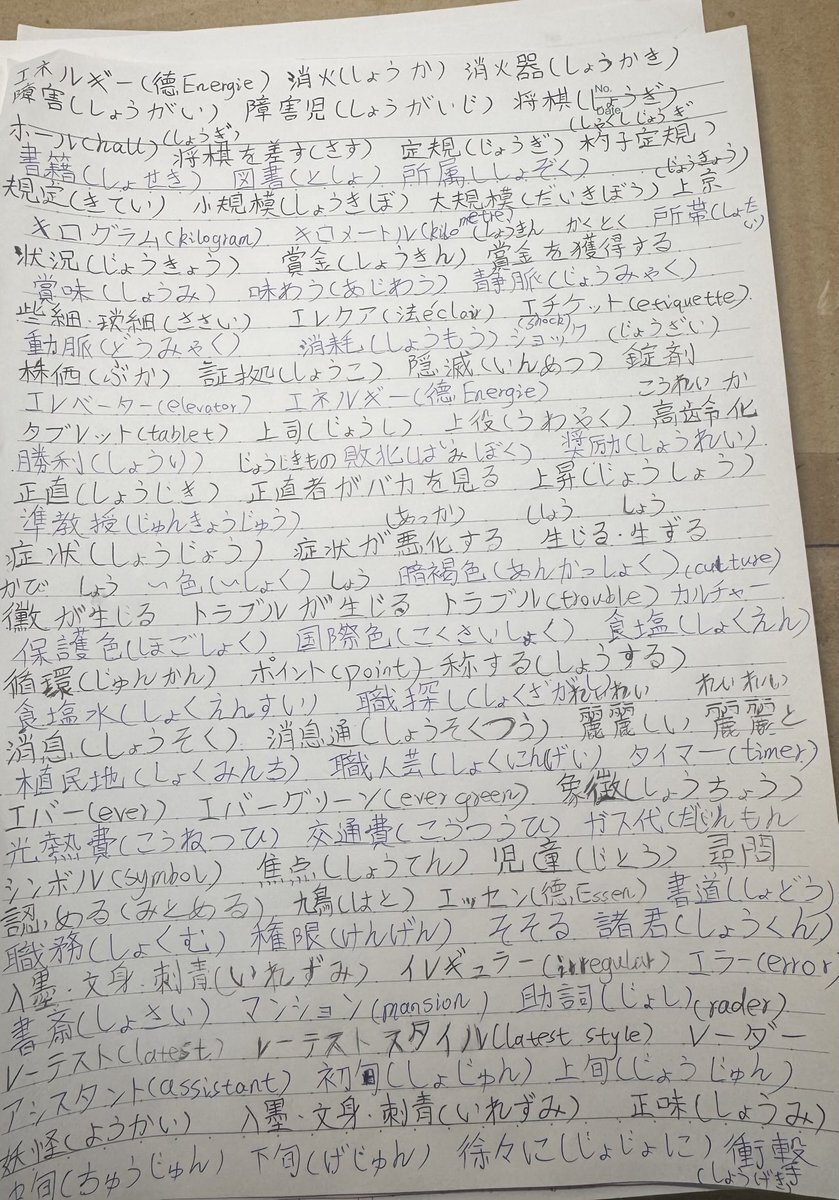 エネルギー(徳Energie) 消火(しょうか) 消火器(しょうかき)
障害(しょうがい) 障害児(しょうがいじ) 将棋(しょうぎ)
No.
Date
ホール(hall) (しょうぎ) (しゃくしじょうぎ
将棋を差す(さす) 定規(じょうぎ) 杓子定規)
書籍(しょせき) 図書(としょ) 所属ししょぞく) (じょうきょう)
規定(きてい) 小規模(しょうきぼ) 大規模(だいきぼう) 上京
キログラム(kilogram) キロメートル(kilometre) しょうきん かくとく 所帯(しょたい)
状況(じょうきょう) 賞金(しょうきん) 賞金を獲得する
賞味(しょうみ) 味わう(あじわう) 静脈(じょうみゃく)
些細・瑣細(ささい) エレクア(法éclair) エチケット(etiquette)
動脈(どうみゃく) 消耗(しょうもう) ショック(shock) (じょうざい)
株価(ぶか) 証拠(しょうこ) 隠滅(いんめつ) 錠剤
エレベーター(elevator) エネルギー(徳Energie) こうれいか
タブレット(tablet) 上司(じょうし) 上役(うわやく) 高齢化
勝利(しょうり) じょうじきもの 敗北(はいぼく) 奨励(しょうれい)
正直(しょうじき) 正直者がバカを見る 上昇(じょうしょう)
準教授(じゅんきょうじゅう) (あっか) しょう しょう
症状(しょうじょう) 症状が悪化する 生じる・生ずる
かび しょう 〜色(〜しょく) しょう 暗褐色(あんかっしょく) (culture)
黴が生じる トラブルが生じる トラブル(trouble) カルチャー
保護色(ほごしょく) 国際色(こくさいしょく) 食塩(しょくえん)
循環(じゅんかん) ポイント(point) 称する(しょうする)
食塩水(しょくえんすい) 職探し(しょくざがし) れいれい れいれい
消息(しょうそく) 消息通(しょうそくつう) 麗麗しい 麗麗と
植民地(しょくみんち) 職人芸(しょくにんげい) タイマー(timer)
エバー(ever) エバーグリーン(ever green) 象徴(しょうちょう)
光熱費(こうねつひ) 交通費(こうつうひ) ガス代(だい) じんもん
シンボル(symbol) 焦点(しょうてん) 児童(じとう) 尋問
認める(みとめる) 鳩(はと) エッセン(徳,Essen) 書道(しょどう)
職務(しょくむ) 権限(けんげん) そそる 諸君(しょうくん)
入墨・文身・刺青(いれずみ) イレギュラー(irregular) エラー(error)
書斎(しょさい) マンション(mansion) 助詞(じょし) (rader)
レーテスト(latest) レーテストスタイル(latest style) レーダー
アシスタント(assistant) 初旬(しょじゅん) 上旬(じょうじゅん)
妖怪(ようかい) 入墨・文身・刺青(いれずみ) 正味(しょうみ)
中旬(ちゅうじゅん) 下旬(げじゅん) 徐々に(じょじょに) 衝撃
(しょうげき)